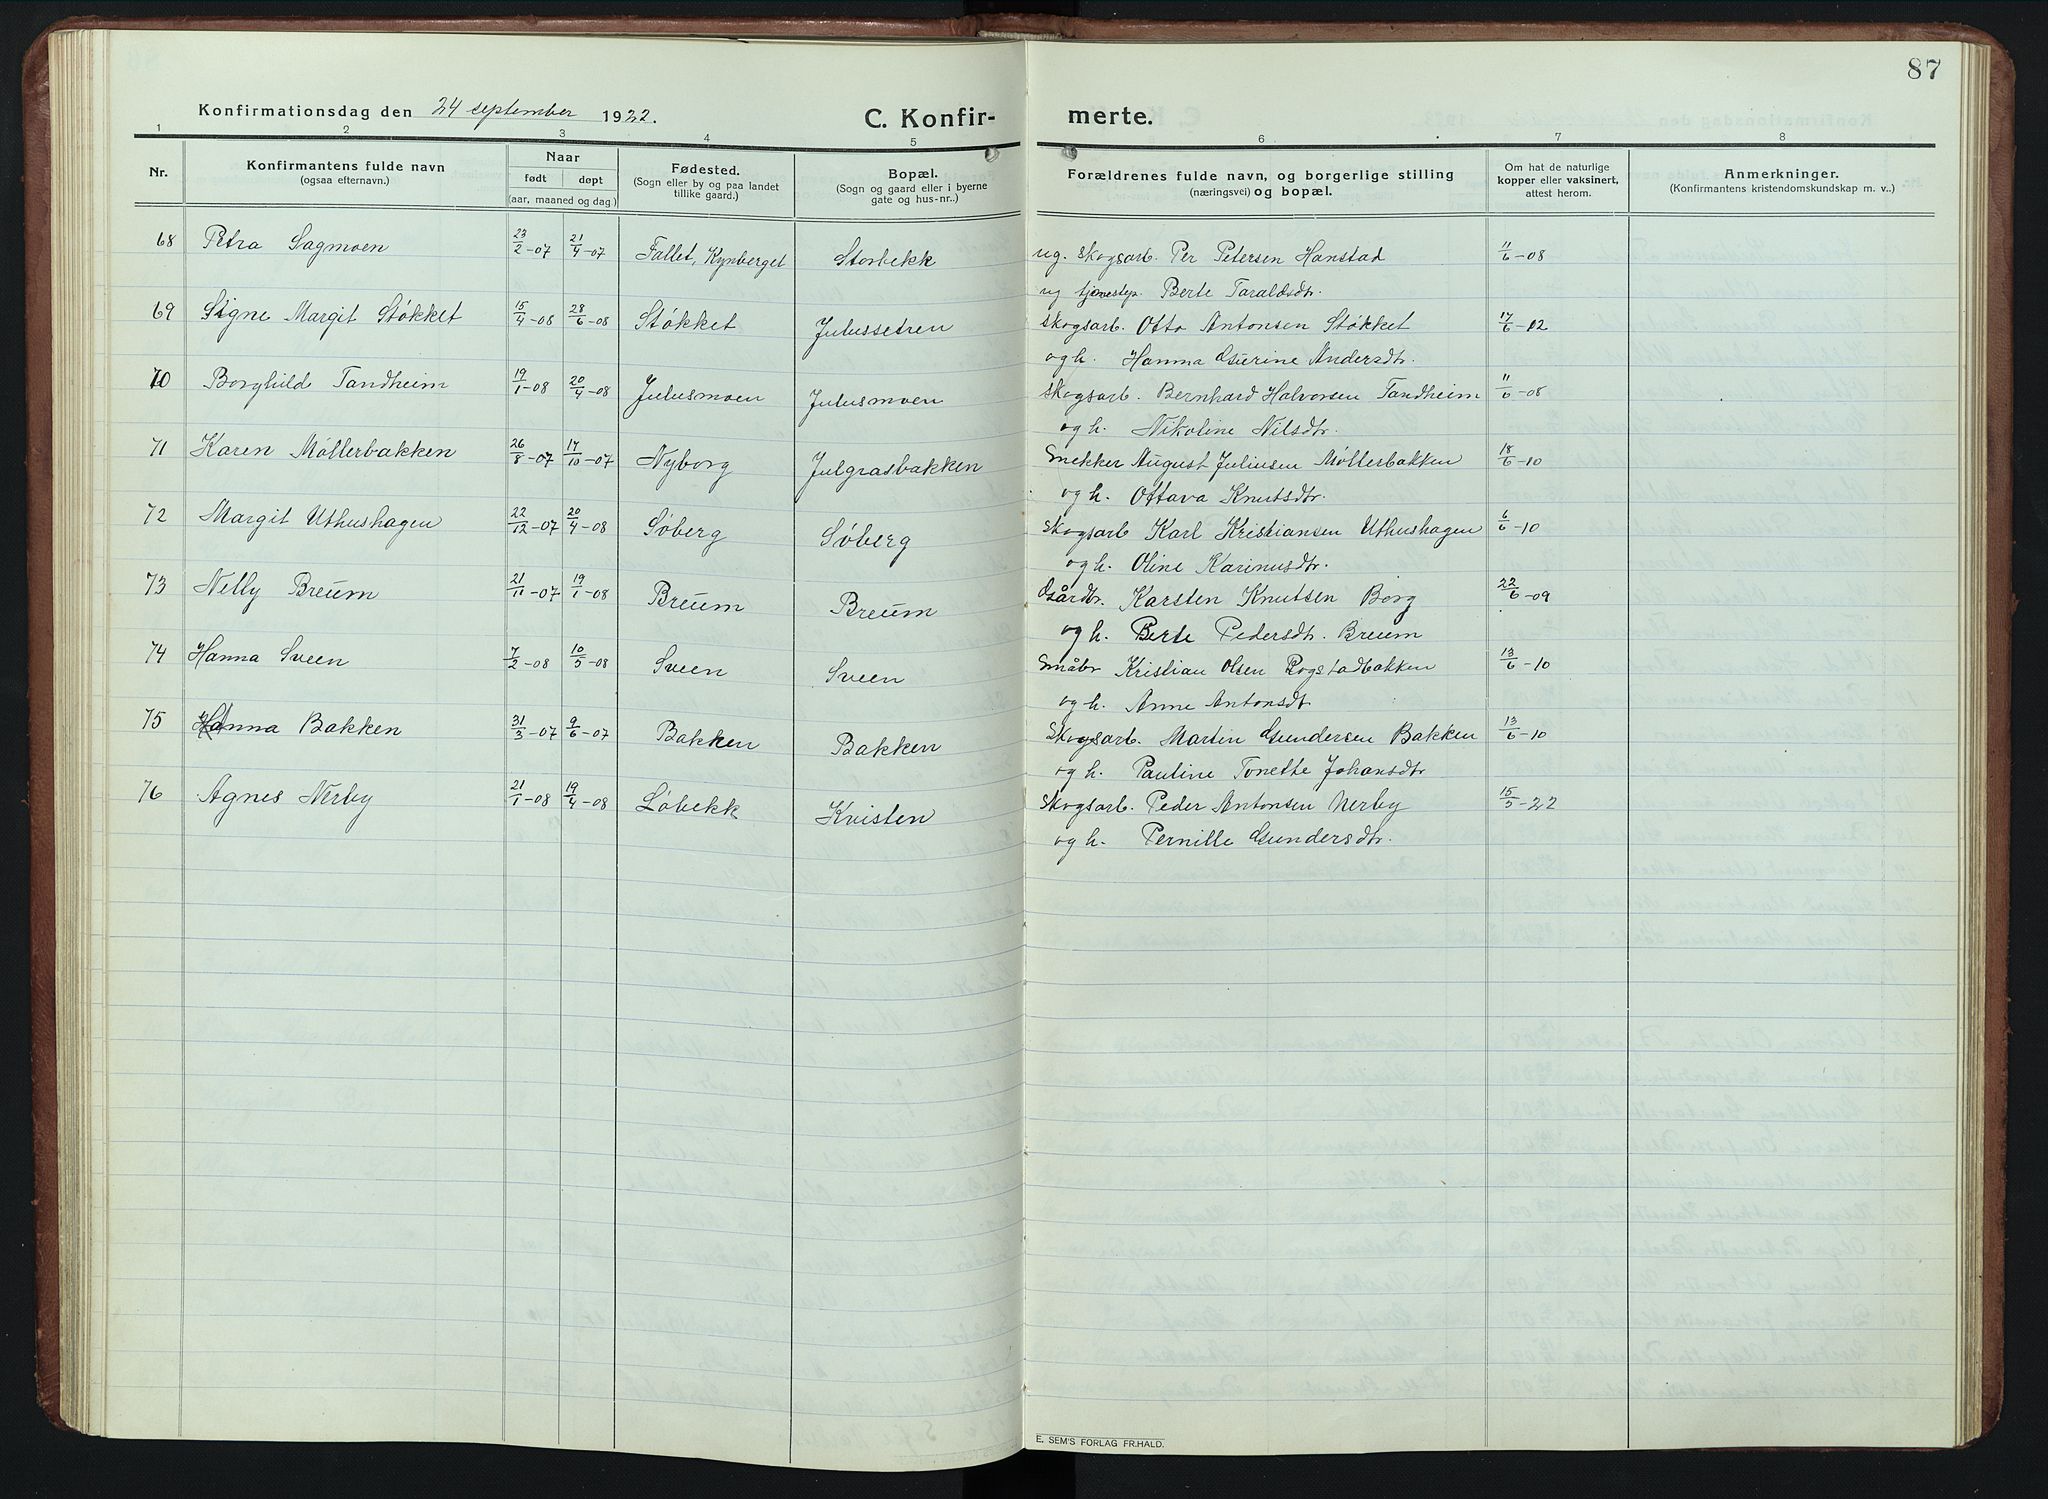 87
Konfirmationsdag den 24 september 1922.
C. Konfirmerte.
1 2 3 4 5 6 7 8
Nr.
Konfirmantens fulde navn
(ogsaa efternavn.)
Naar
født døpt
(aar, maaned og dag.)
Fødested.
(Sogn eller by og paa landet
tillike gaard.)
Bopæl.
(Sogn og gaard eller i byerne
gate og hus-nr..)
Forældrenes fulde navn, og borgerlige stilling
(næringsvei) og bopæl.
Om hat de naturlige
kopper eller vaksinert,
attest herom.
Anmerkninger.
(Konfirmantens kristendomskundskap m. v..)
68 Petra Sagmoen 23/2-07 21/4-07 Fallet, Kynberget Storbekk ug. Skogsarb. Per Petersen Hanstad 11/6-08
ug tjenestep. Berte Taraldsdtr.
69 Signe Margit Støkket 15/4-08 28/6-08 Støkket Julussetren Skogsarb. Otto Antonsen Støkket 17/6-12
og h. Hanna Gurine Andersdtr.
70 Borghild Tandheim 19/1-08 20/4-08 Julusmoen Julusmoen Skogsarb. Bernhard Halvorsen Tandheim 11/6-08
og h. Nikoline Nilsdtr.
71 Karen Møllerbakken 26/8-07 17/10-07 Nyborg Julgrasbakken Snekker August Juliusen Møllerbakken 18/6-10
og h. Ottava Knutsdtr.
72 Margit Uthushagen 22/12-07 20/4-08 Søberg Søberg Skogsarb Karl Kristiansen Uthushagen 6/6-10
og h. Oline Karinusdtr.
73 Nelly Breum 21/11-07 19/1-08 Breum Breum Gårdbr. Karsten Knutsen Borg 22/6-09
og h. Berte Pedersdtr. Breum
74 Hanna Sveen 7/2-08 10/5-08 Sveen Sveen Småbr Kristian Olsen Rogstadbakken 13/6-10
og h. Anne Antonsdt
75 Anna Bakken 31/3-07 9/6-07 Bakken Bakken Skogsarb. Martin Gundersen Bakken 13/6-10
og h. Pauline Tonette Johansdtr
76 Agnes Nerby 21/1-08 19/4-08 Løbekk Kvisten Skogsarb. Peder Antonsen Nerby 15/5-22
og h. Pernille Gundersdtr.
E. SEM'S FORLAG FR.HALD.